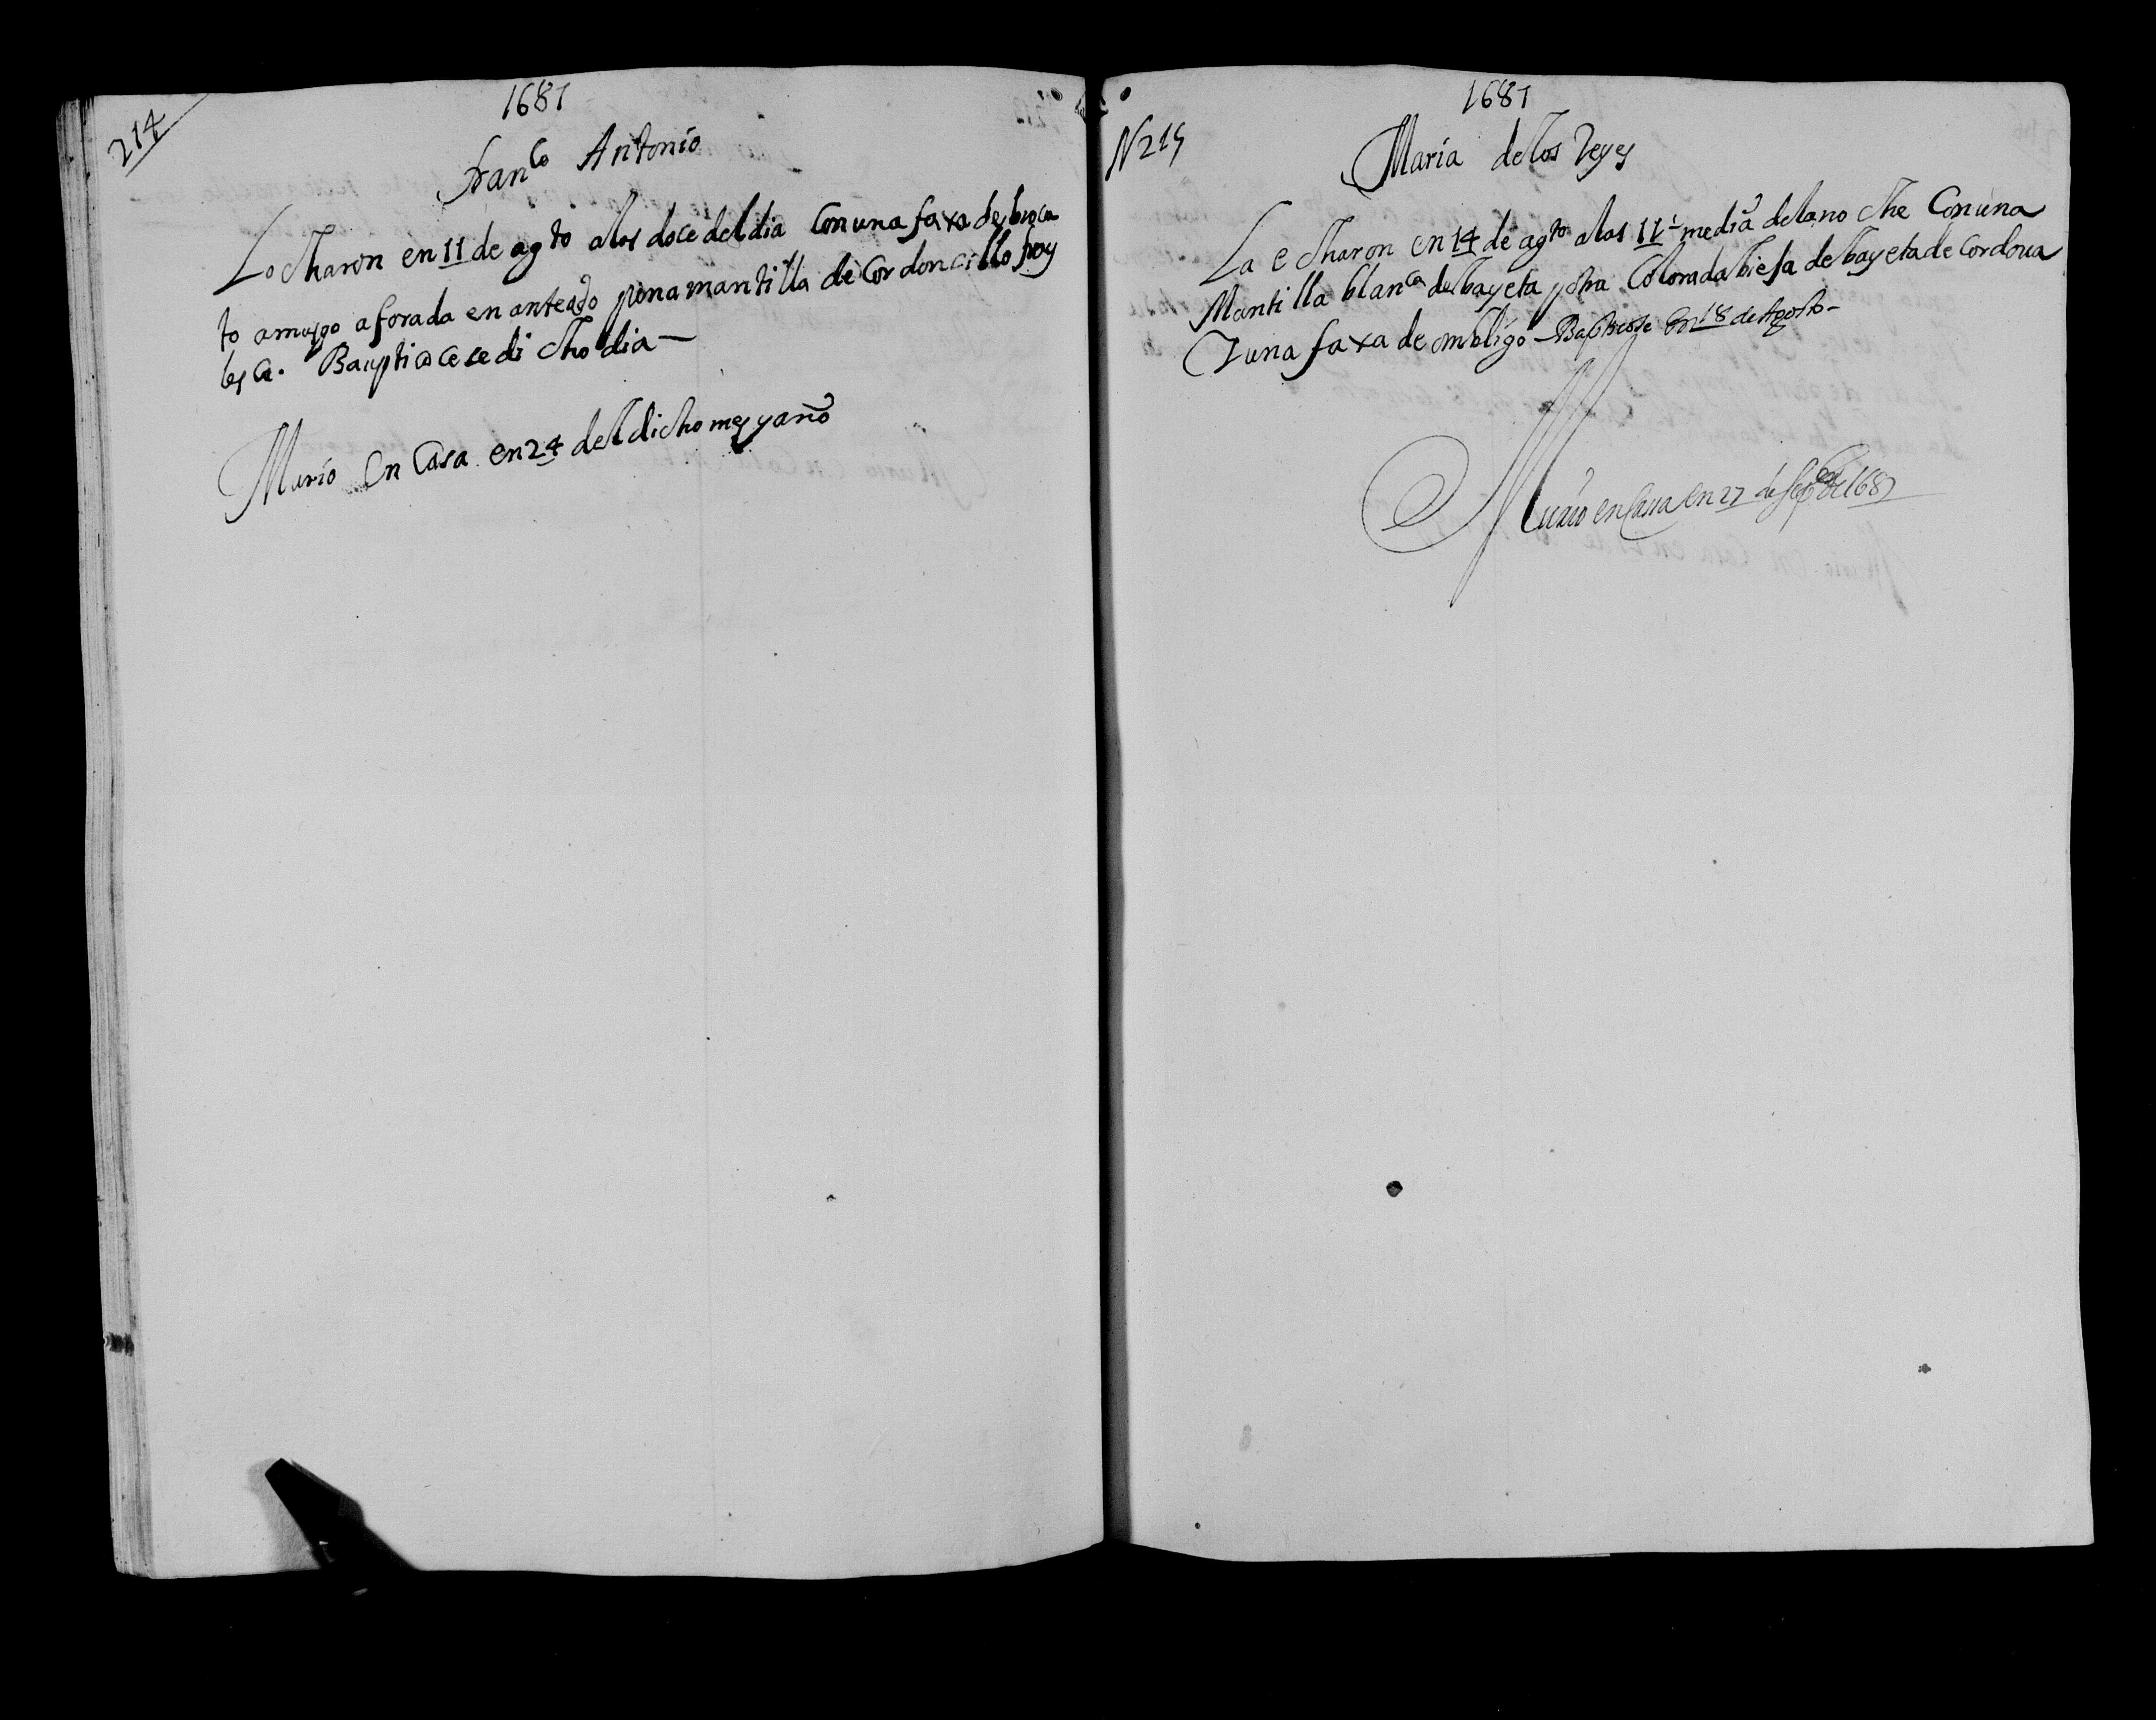 214
1681
Franco Antonio
Lo charon en 11 de agto a las doce del dia Con una faxa de broca
to amusgo aforada en anteado y una mantilla de Cordoncillo
Bauptiçose dicho dia —
Murio En Casa en 24 del dicho mes y año
N 215
1681
Maria de los Reyes
La echaron en 14 de agto a las 11 i media de la noche Con una
Mantilla blanca de bayeta y otra Colorada biesa de bayeta de Cordoua
Y una faxa de ombligo — Baptiçose En 18 de Agosto —
Murio en Cassa en 27 de Sepbre de 1681